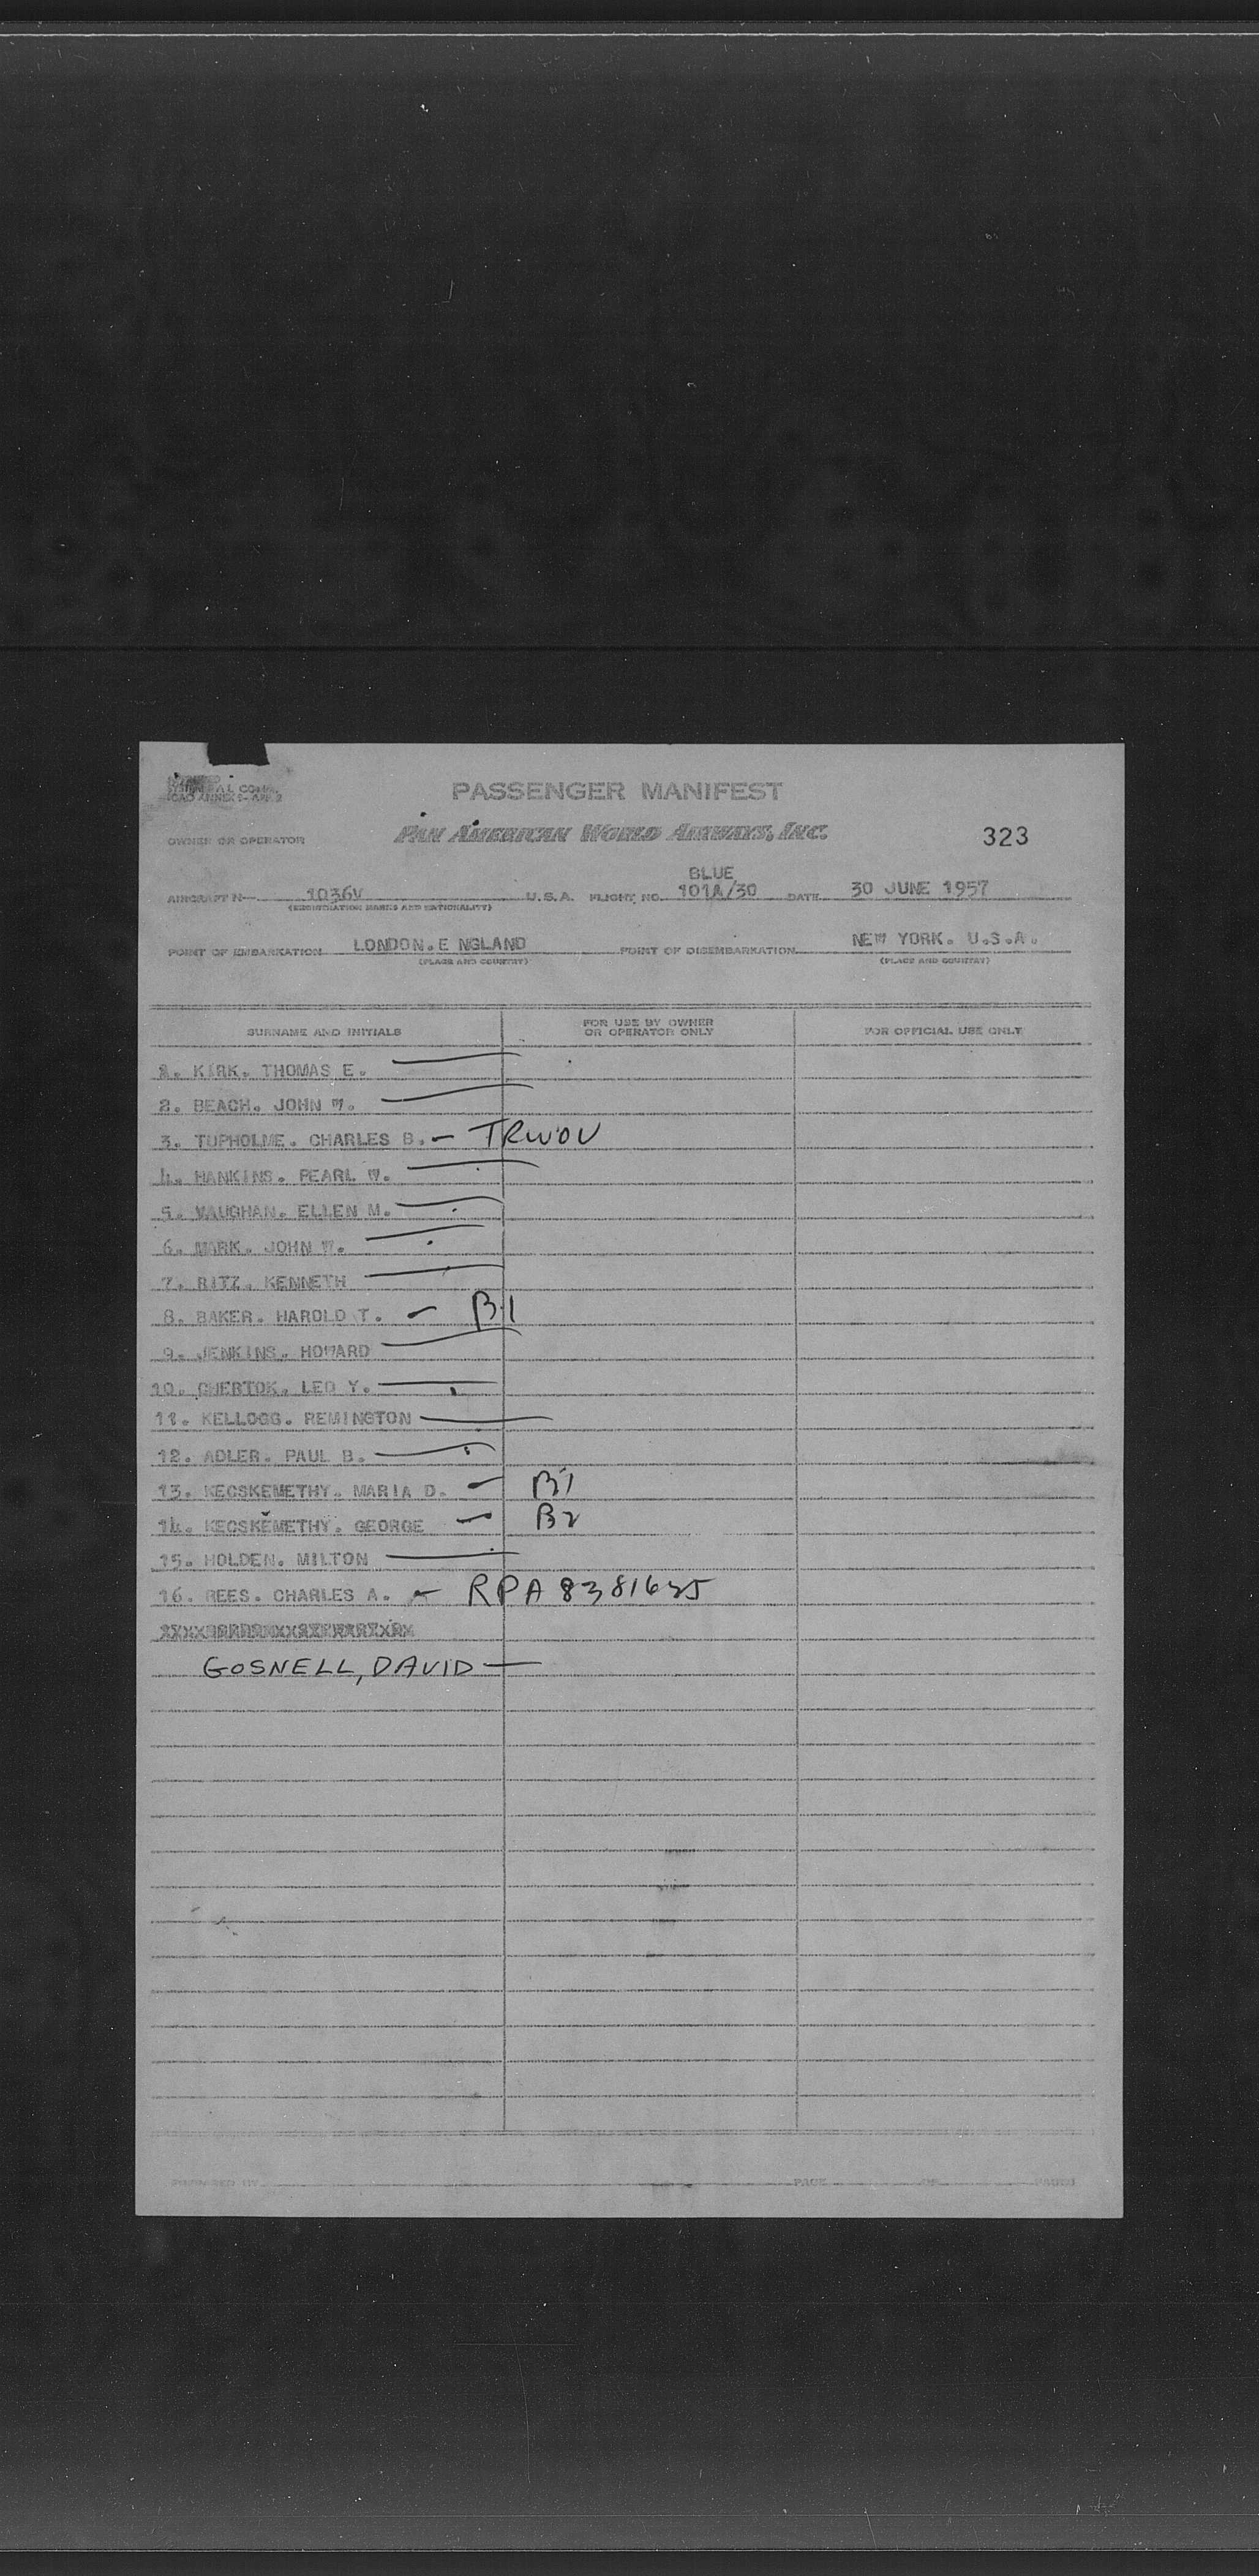 PASSENGER MANIFEST
ICAO ANNEX 9-APP. 2
OWNER OR OPERATOR PAN AMERICAN WORLD AIRWAYS, INC. 323
BLUE
AIRCRAFT N— 1036V U.S.A. FLIGHT NO. 101A/30 DATE 30 JUNE 1957
(REGISTRATION MARKS AND NATIONALITY)
POINT OF EMBARKATION LONDON.E NGLAND POINT OF DISEMBARKATION NEW YORK. U.S.A.
(PLACE AND COUNTRY) (PLACE AND COUNTRY)
SURNAME AND INITIALS FOR USE BY OWNER OR OPERATOR ONLY FOR OFFICIAL USE ONLY
1. KIRK. THOMAS E. —
2. BEACH. JOHN W. —
3. TUPHOLME. CHARLES B. — TRWOV
4. HANKINS. PEARL W. —
5. VAUGHAN. ELLEN M. —
6. MARK. JOHN W. —
7. RITZ. KENNETH —
8. BAKER. HAROLD T. — B1
9. JENKINS. HOWARD —
10. CHERTOK. LEO Y. —
11. KELLOGG. REMINGTON —
12. ADLER. PAUL B. —
13. KECSKEMETHY. MARIA D. — B1
14. KECSKEMETHY. GEORGE — B2
15. HOLDEN. MILTON —
16. REES. CHARLES A. — RPA 8381635
GOSNELL, DAVID —
PREPARED BY PAGE OF PAGES